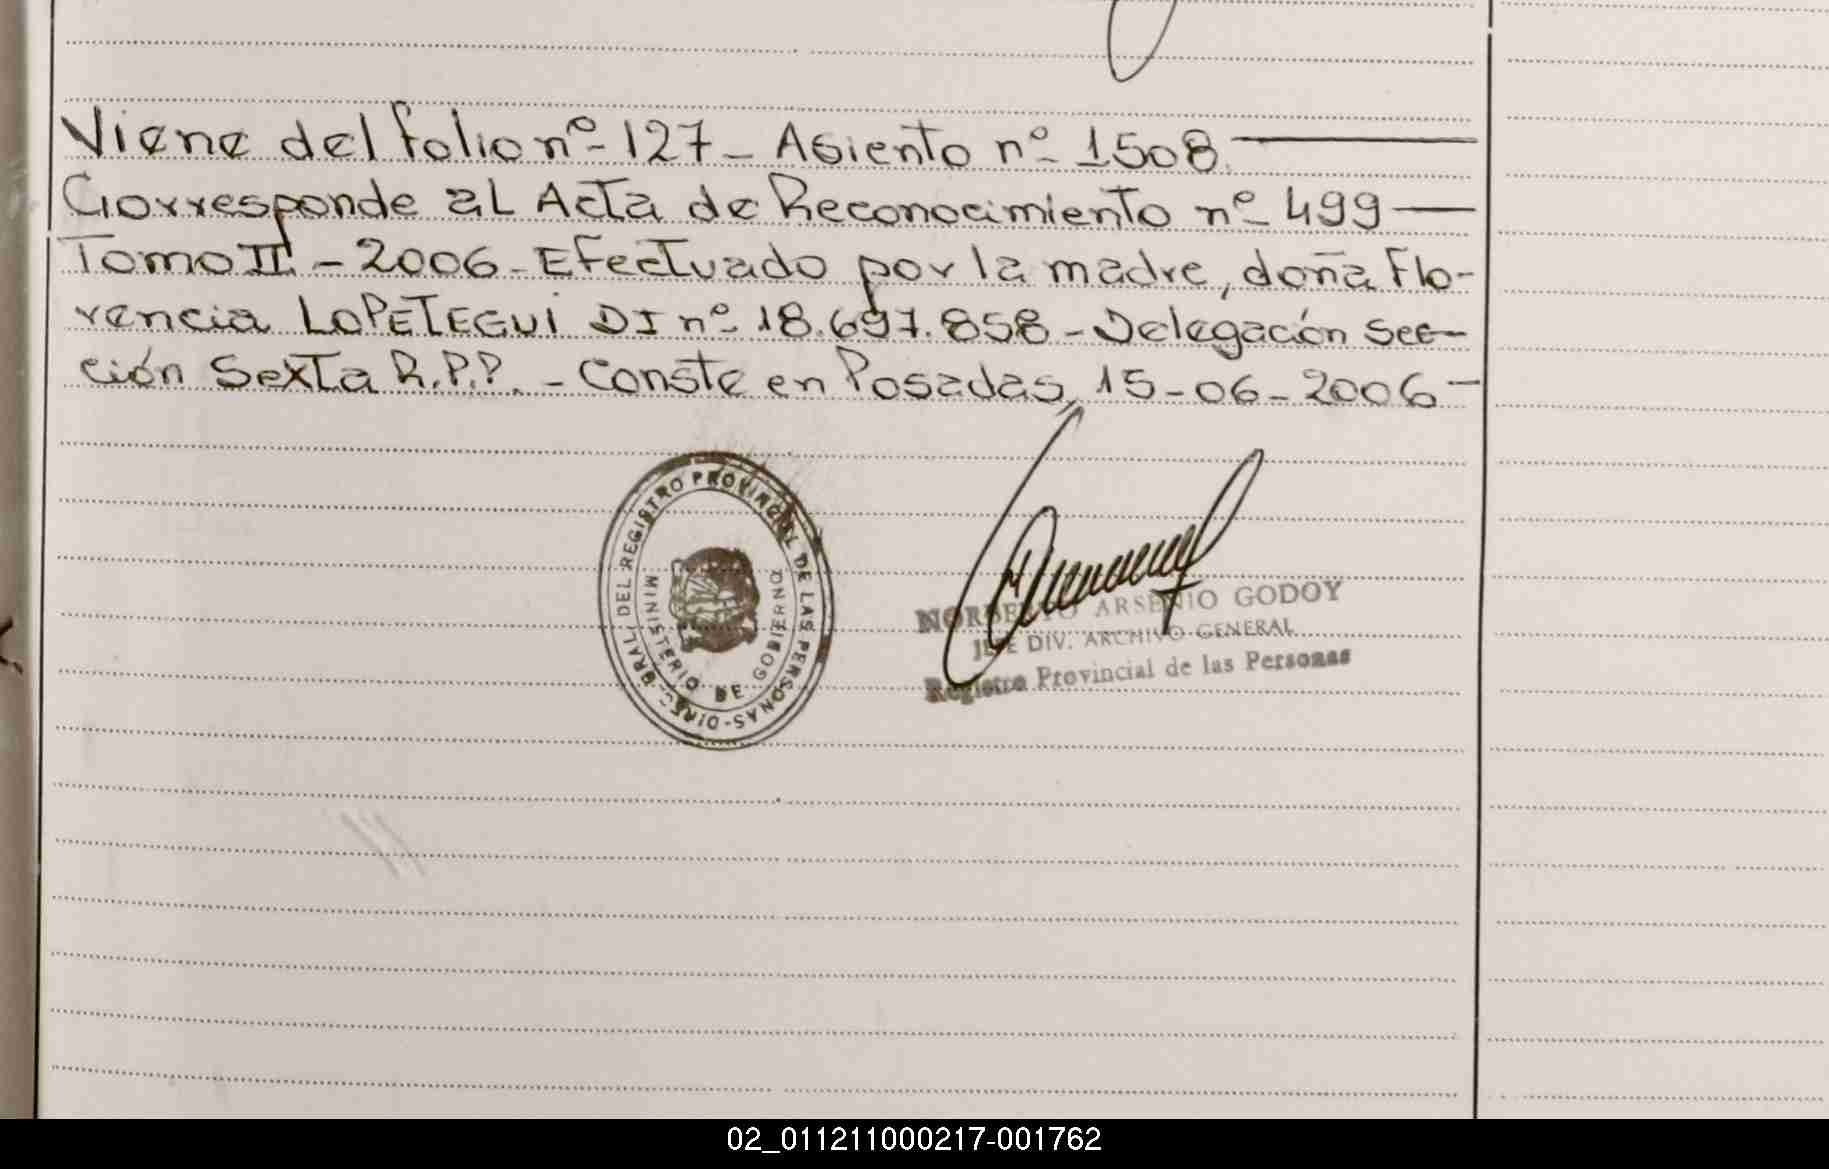 Viene del folio nº 127 - Asiento nº 1508.
Corresponde al Acta de Reconocimiento nº 499
Tomo II - 2006 - Efectuado por la madre, doña Flo-
rencia LOPETEGUI DI nº 18.697.858 - Delegación Sec-
ción Sexta R.P.P. - Conste en Posadas, 15-06-2006
DIREC. GRAL. DEL REGISTRO PROVINCIAL DE LAS PERSONAS
MINISTERIO DE GOBIERNO
NORBERTO ARSENIO GODOY
JEFE DIV. ARCHIVO GENERAL
Registro Provincial de las Personas
02_011211000217-001762